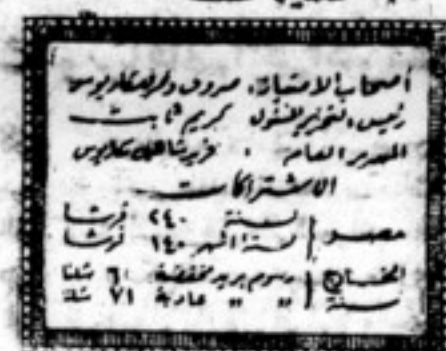 أصحاب الامتياز: صروف ونمر ومكاريوس
رئيس التحرير المسئول كريم ثابت
المدير العام : فريد شاهين مكاريوس
الاشتراكات
مصر لسنة ٢٤٠ قرشا
لستة اشهر ١٤٠ قرشا
الخارج رسوم بريد مخفضة ٦١ شلنا
سنة " " عادية ٧١ شلنا